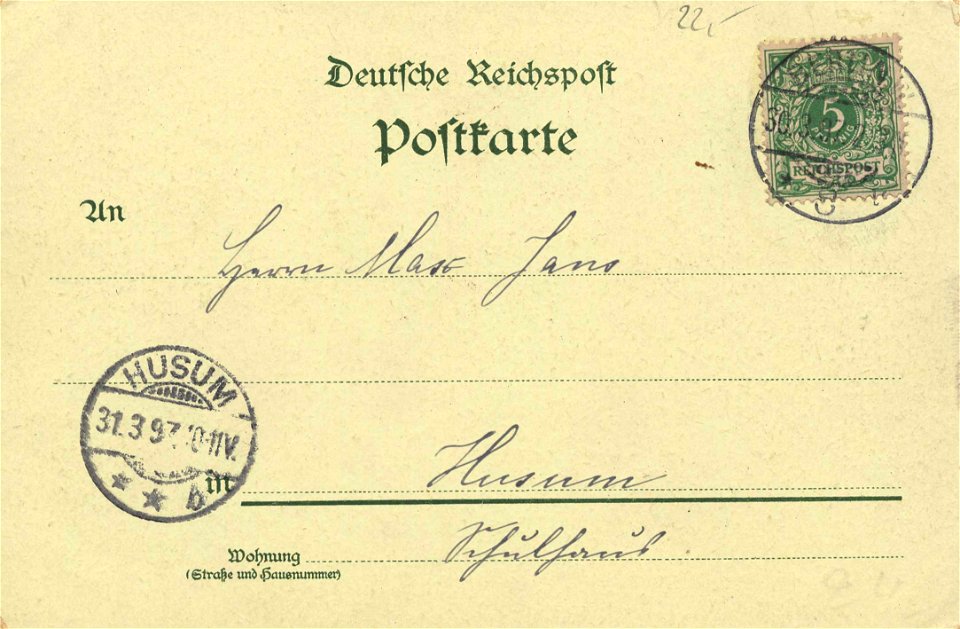 22,-
Deutsche Reichspost
Postkarte
5
PFENNIG
REICHSPOST
30.3.
An
Herrn Max Jans
HUSUM
31.3 97. 10-11V.
* * b
in Husum
Schulhaus.
Wohnung
(Straße und Hausnummer)